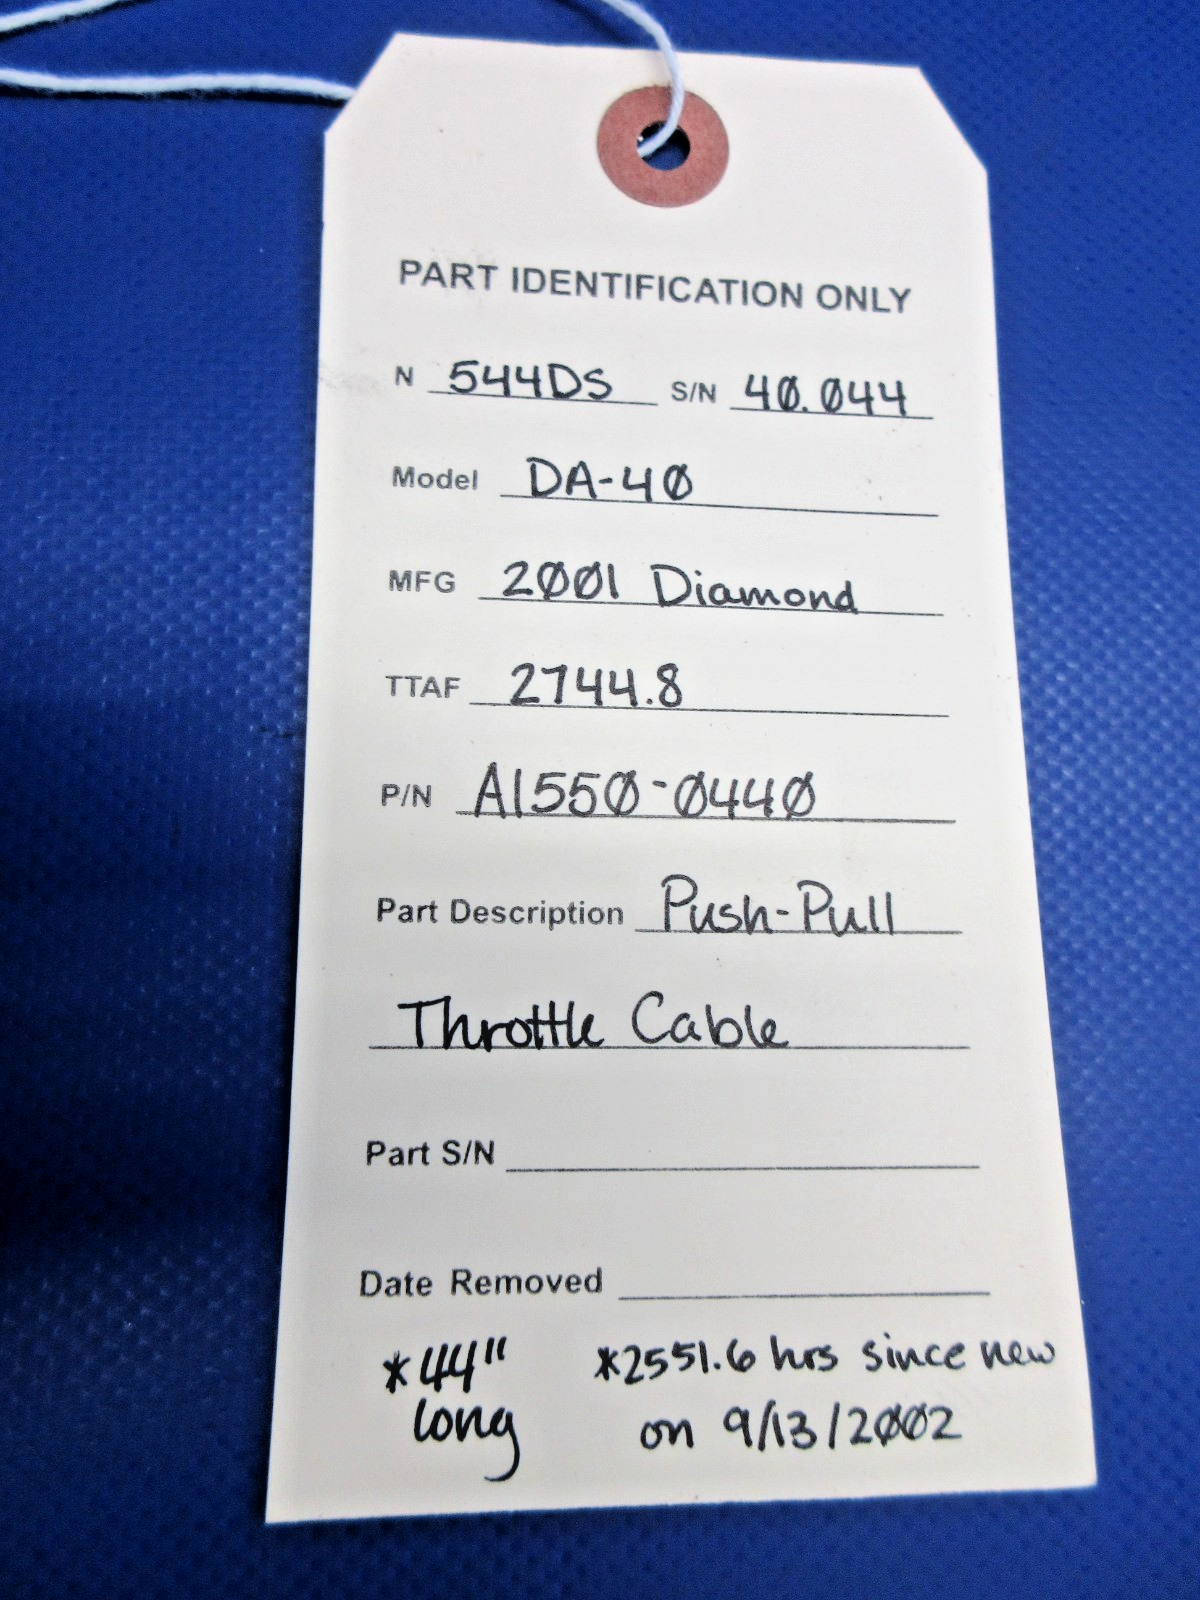 PART IDENTIFICATION ONLY
N 544DS S/N 40.044
Model DA-40
MFG 2001 Diamond
TTAF 2744.8
P/N A1550-0440
Part Description Push-Pull
Throttle Cable
Part S/N
Date Removed
*44" *2551.6 hrs since new
long on 9/13/2002